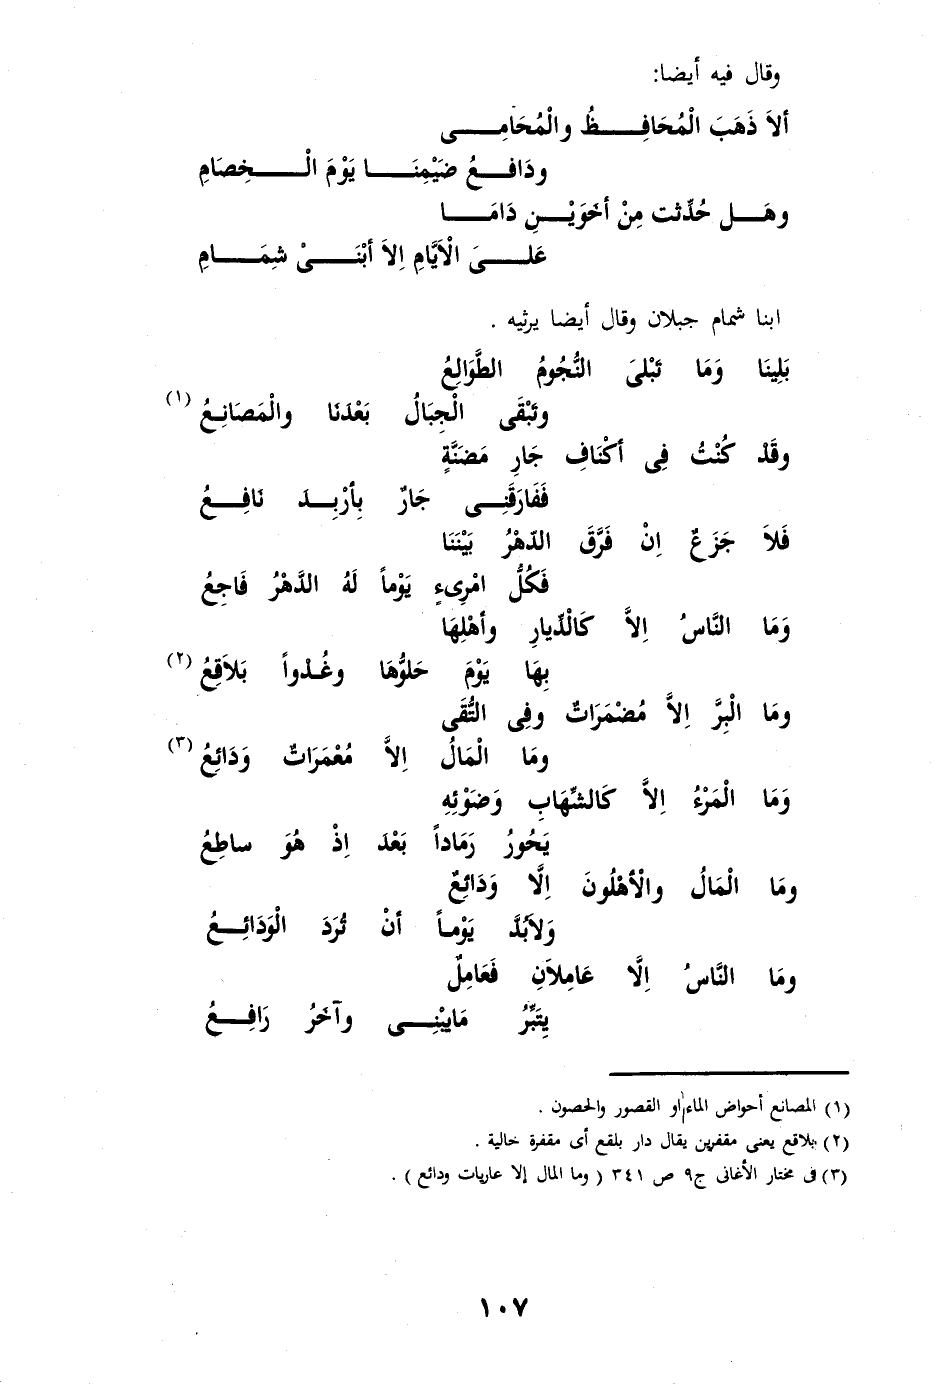 وقال فيه أيضا:
ألاَ ذَهَبَ الْمُحَافِـــــظُ والْمُحَامِـــــى
ودَافــــعُ ضَيْمِنَـــــا يَوْمَ الْـــــخِصَامِ
وهَـــل حُدِّثت مِنْ أخَوَيْـــنِ دَامَـــا
عَلـــــىَ الْاَيَّامِ اِلاَ أبْنَـــــىْ شِمَـــــامِ
ابنا شمام جبلان وقال أيضا يرثيه .
بَلِينَا وَمَا تَبْلىَ النُّجُومُ الطَّوَالِعُ
وتَبْقَى الْجِبَالُ بَعْدَنَا والْمَصَانِـعُ (١)
وقَدْ كُنْتُ فِى أكْنَافِ جَارِ مَضَنَّةٍ
فَفَارَقَنِـــى جَارٌ بِأرْبِـــدَ نَافِـــعُ
فَلاَ جَزَعٌ اِنْ فَرَّقَ الدّهْرُ بَيْنَنَا
فَكُلُّ امْرِىءٍ يَوْماً لَهُ الدَّهْرُ فَاجِعُ
وَمَا النَّاسُ اِلاَّ كَالْدِّيارِ وأهْلِهَا
بِهَا يَوْمَ حَلوُّهَا وغُـدْواً بَلاَقِعُ (٢)
ومَا الْبِرَّ اِلاَّ مُضْمَرَاتٌ وفِى التُّقَى
ومَا الْمَالُ اِلاَّ مُعْمَرَاتٌ وَدَائِعُ (٣)
وَمَا الْمَرْءُ اِلاَّ كَالشِّهَابِ وَضَوْئِهِ
يَحُورُ رَمَاداً بَعْدَ اِذْ هُوَ ساطِعُ
ومَا الْمَالُ والْأهْلُونَ اِلَّا وَدَائِعٌ
وَلاَبُدَّ يَوْمـاً أنْ تُرَدَ الْوَدَائِـــعُ
ومَا النَّاسُ اِلَّا عَامِلاَنِ فَعَامِلٌ
يِتَبِّرُ مَايبْنِـــى وآخَرُ رَافِـــعُ
(١) المصانع أحواض الماء أو القصور والحصون .
(٢) بلاقع يعنى مقفرين يقال دار بلقع أى مقفرة خالية .
(٣) فى مختار الأغانى ج٩ ص ٣٤١ ( وما المال إلا عاريات ودائع ) .
١٠٧